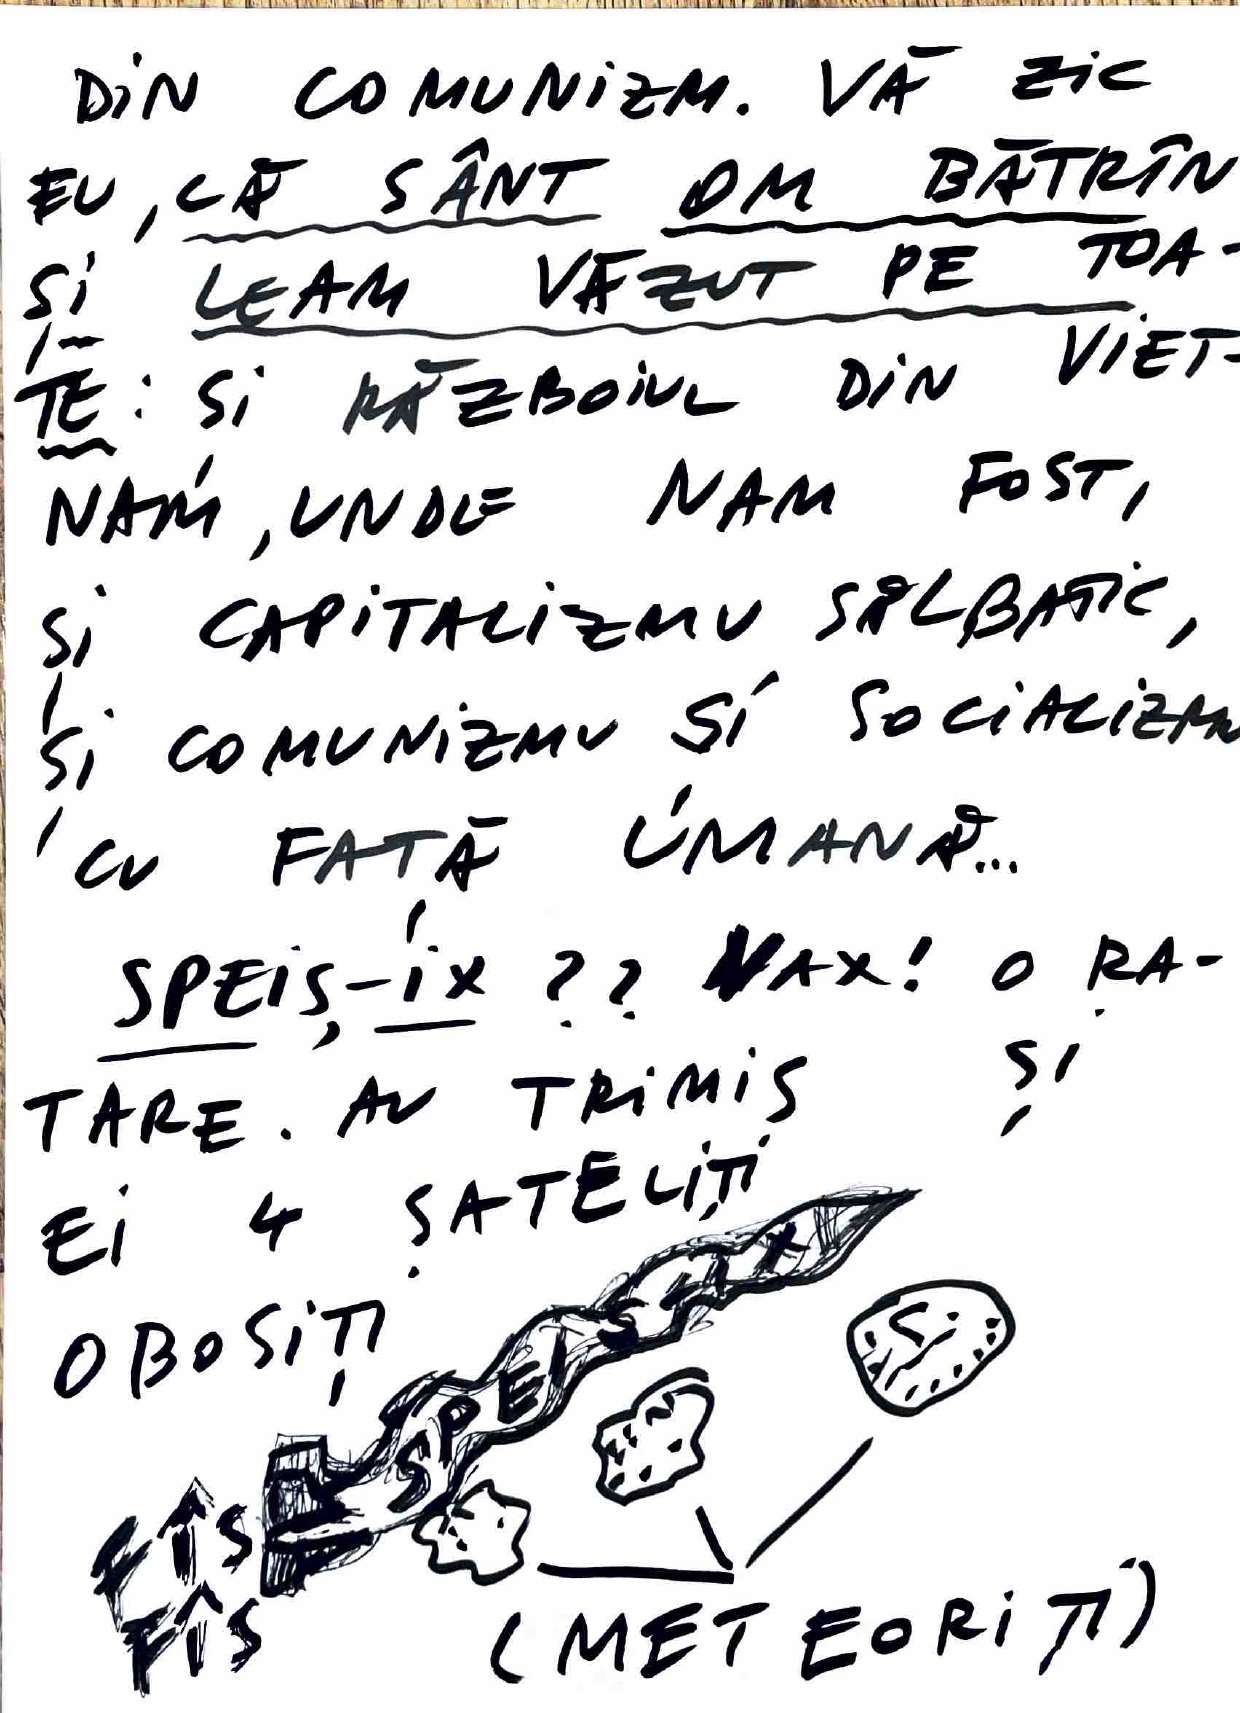 DIN COMUNIZM. VĂ ZIC
EU, CĂ SÂNT OM BĂTRÎN
ȘI LEAM VĂZUT PE TOA-
TE: ȘI RĂZBOIUL DIN VIET-
NAM, UNDE NAM FOST,
ȘI CAPITALIZMU SĂLBATIC,
ȘI COMUNIZMU ȘI SOCIALIZMU
CU FAȚĂ UMANĂ...
SPEIS-IX ?? VAX! O RA-
TARE. AU TRIMIS ȘI
EI 4 SATELIȚI
OBOSIȚI
SPEIS IX
FÎS
FÎS
(METEORIȚI)